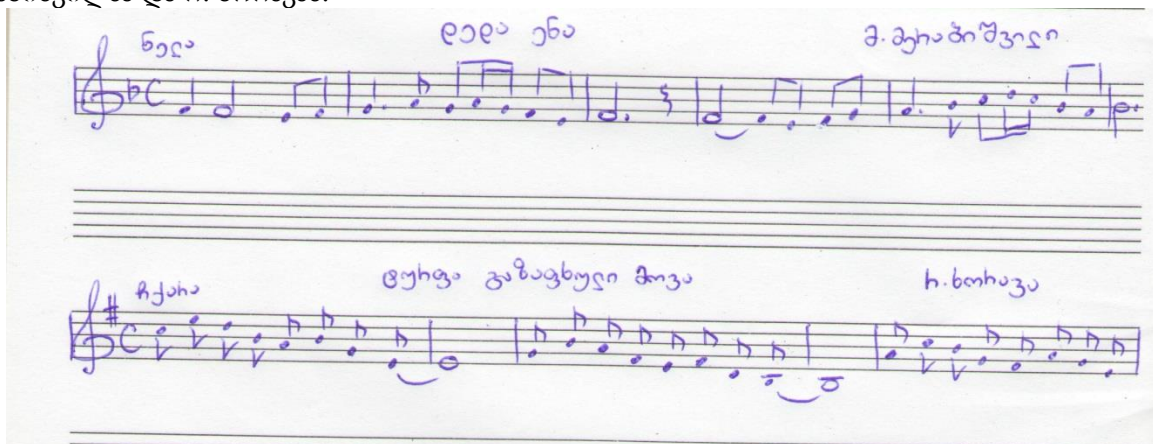 ნელა დედა ენა მ. მერაბიშვილი
ჩქარა ტურფა გაზაფხული მოვა რ. ხორავა